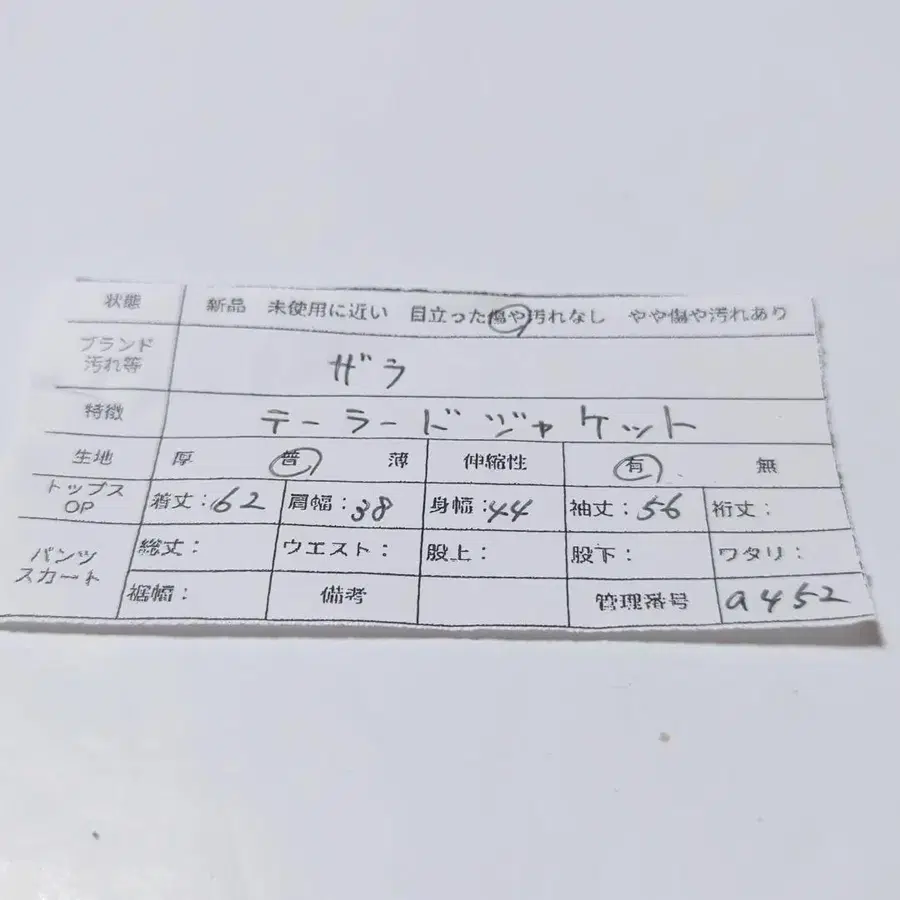 状態 新品 未使用に近い 目立った傷や汚れなし やや傷や汚れあり
ブランド
汚れ等 ザラ
特徴 テーラードジャケット
生地 厚 普 薄 伸縮性 有 無
トップス
OP 着丈:62 肩幅:38 身幅:44 袖丈:56 裄丈:
パンツ
スカート 総丈: ウエスト: 股上: 股下: ワタリ:
裾幅: 備考 管理番号 a452